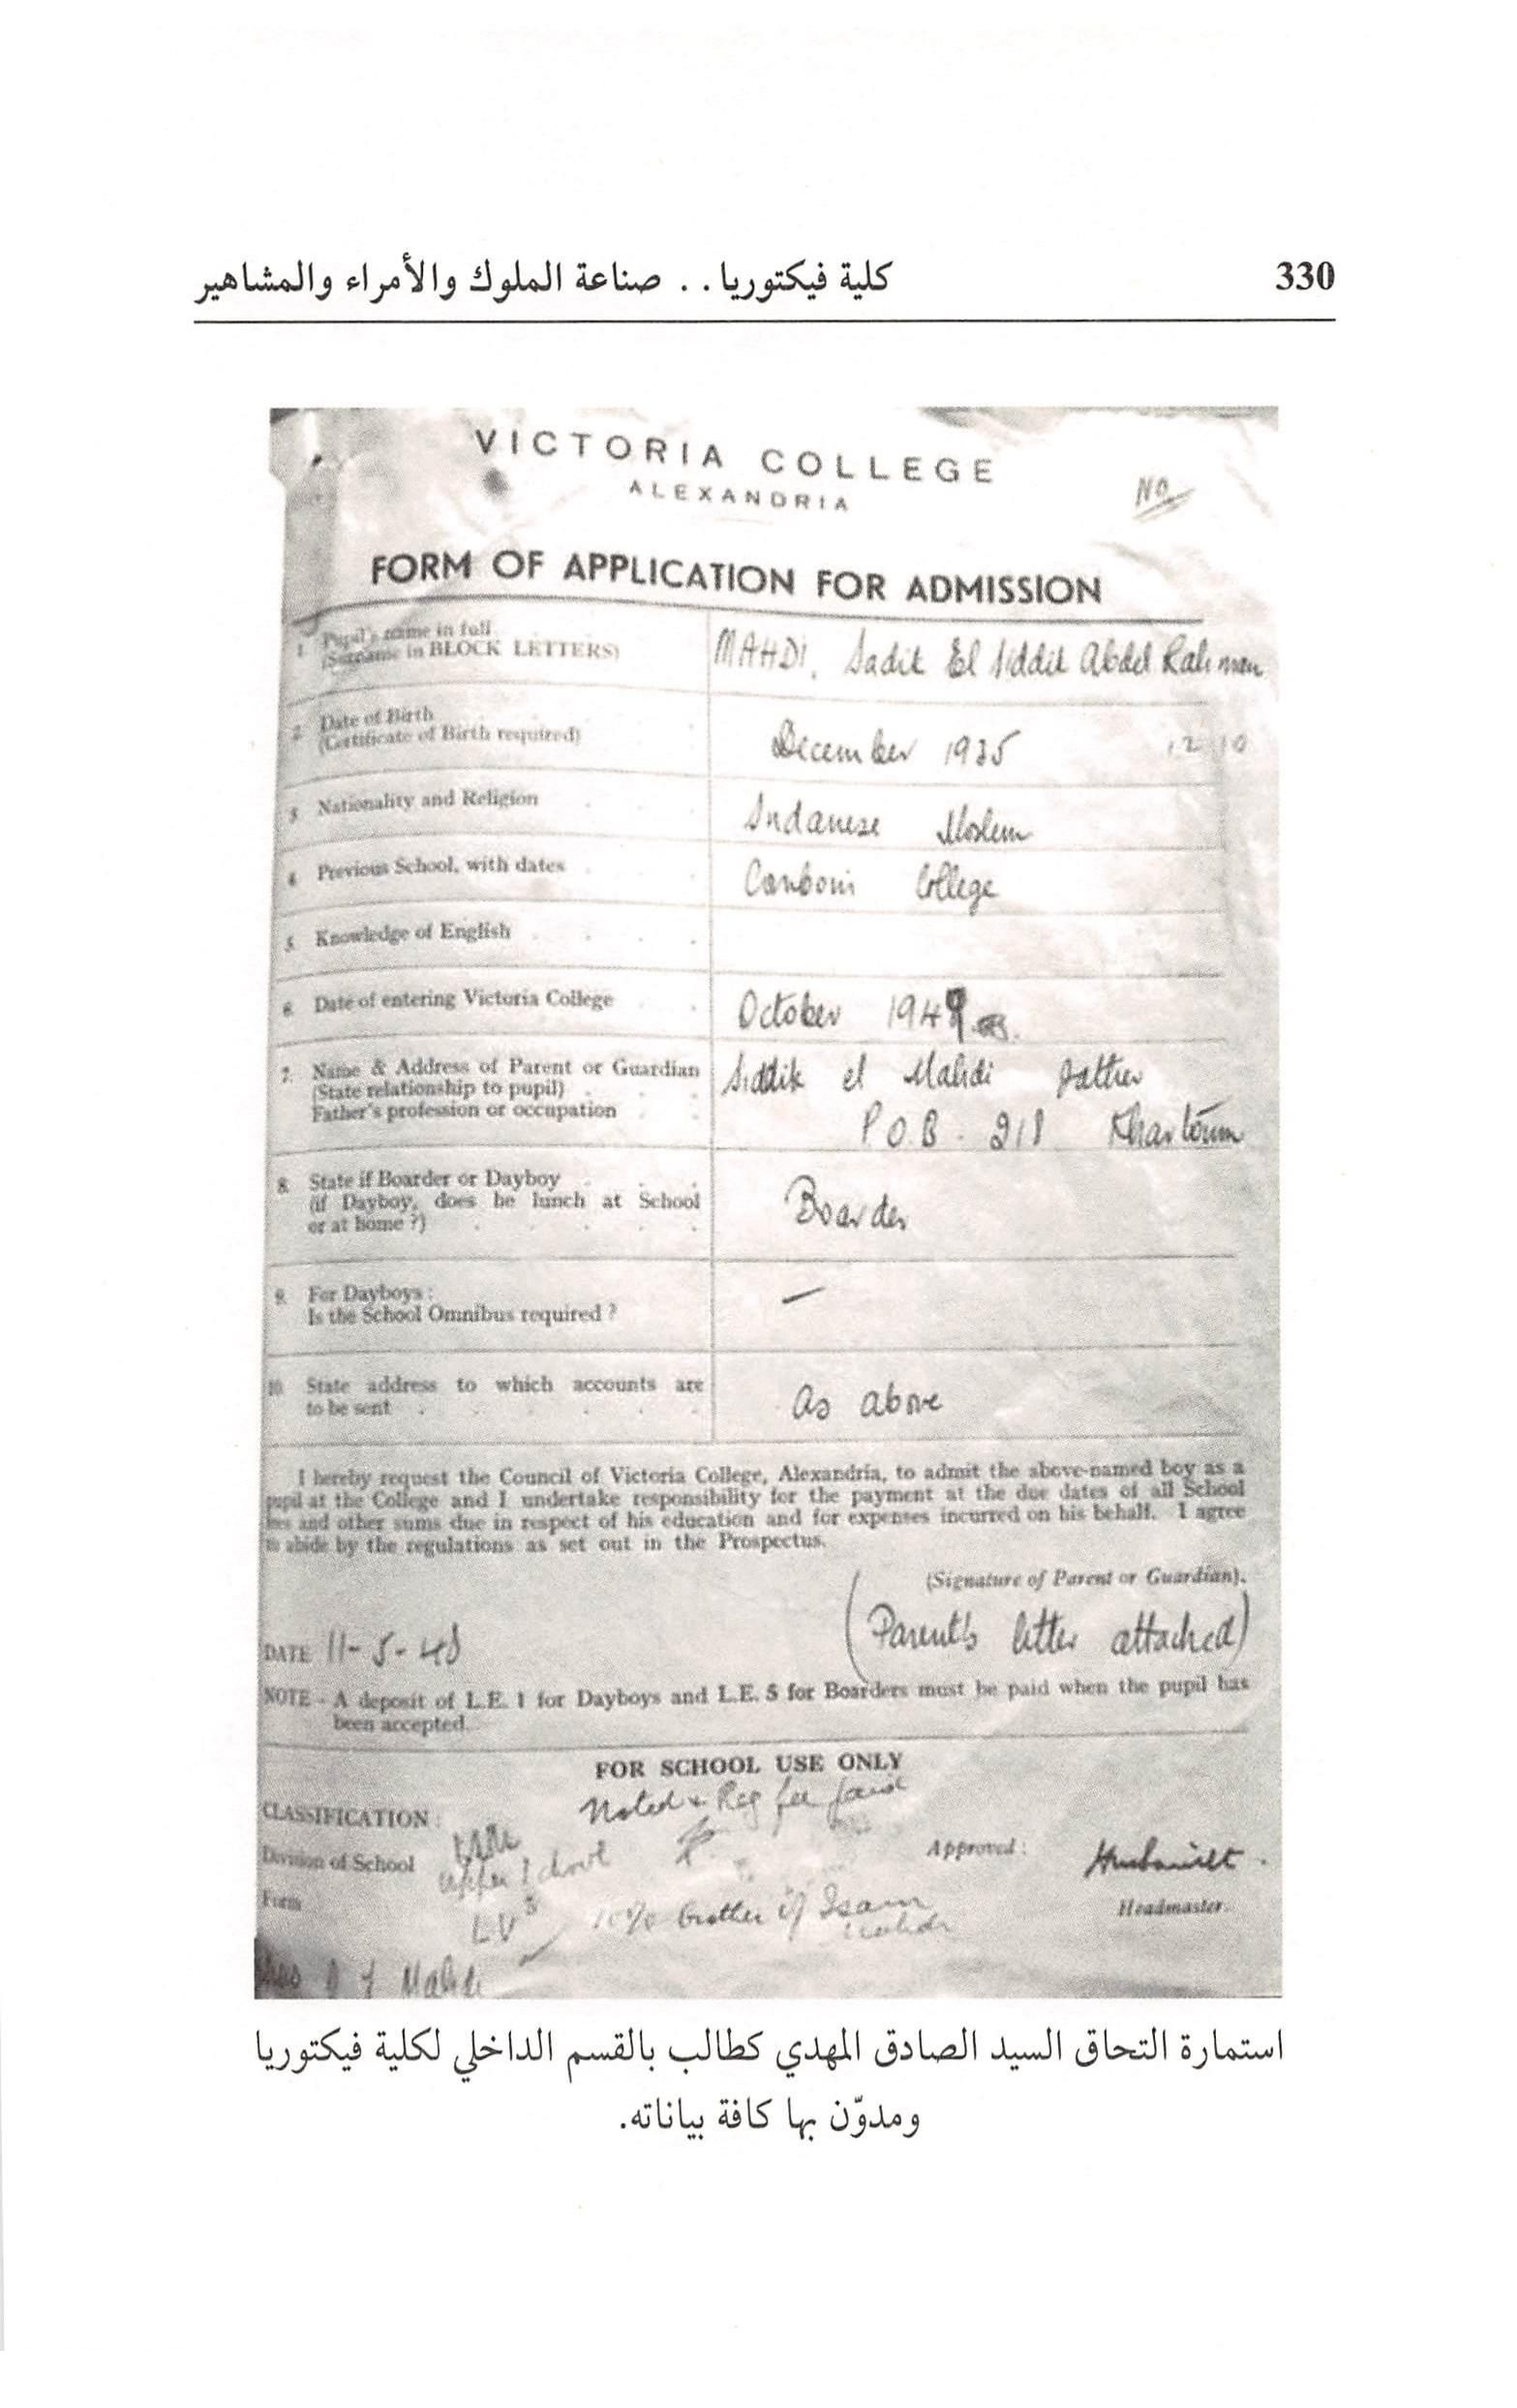 330
كلية فيكتوريا . . صناعة الملوك والأمراء والمشاهير
VICTORIA COLLEGE
ALEXANDRIA
No
FORM OF APPLICATION FOR ADMISSION
1 Pupil's name in full
(Surname in BLOCK LETTERS)
MAHDI, Sadik El Siddik Abdel Rahman
2 Date of Birth
(Certificate of Birth required)
December 1935
12 10
3 Nationality and Religion
Sudanese Moslem
4 Previous School, with dates
Comboni College
5 Knowledge of English
6 Date of entering Victoria College
October 1949
7. Name & Address of Parent or Guardian
(State relationship to pupil)
Father's profession or occupation
Siddik el Mahdi father
P.O.B. 218 Khartoum
8 State if Boarder or Dayboy
(if Dayboy, does he lunch at School
or at home ?)
Boarder
9. For Dayboys :
Is the School Omnibus required ?
—
10 State address to which accounts are
to be sent
as above
I hereby request the Council of Victoria College, Alexandria, to admit the above-named boy as a
pupil at the College and I undertake responsibility for the payment at the due dates of all School
fees and other sums due in respect of his education and for expenses incurred on his behalf. I agree
to abide by the regulations as set out in the Prospectus.
(Signature of Parent or Guardian).
(Parent's letter attached)
DATE 11-5-48
NOTE - A deposit of L.E. 1 for Dayboys and L.E. 5 for Boarders must be paid when the pupil has
been accepted.
FOR SCHOOL USE ONLY
Noted & Reg fee paid
CLASSIFICATION :
Division of School
Upper School
Approved :
Form
LV 3
10% brother of Isam
Mahdi
Headmaster.
Mahdi
استمارة التحاق السيد الصادق المهدي كطالب بالقسم الداخلي لكلية فيكتوريا
ومدوّن بها كافة بياناته.